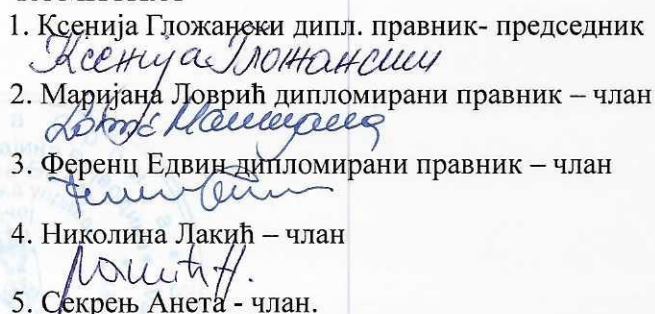 1. Ксенија Гложански дипл. правник- председник
Ксенија Гложански
2. Маријана Ловрић дипломирани правник – члан
Ловрић Маријана
3. Ференц Едвин дипломирани правник – члан
4. Николина Лакић – члан
Лакић Н.
5. Секрењ Анета - члан.